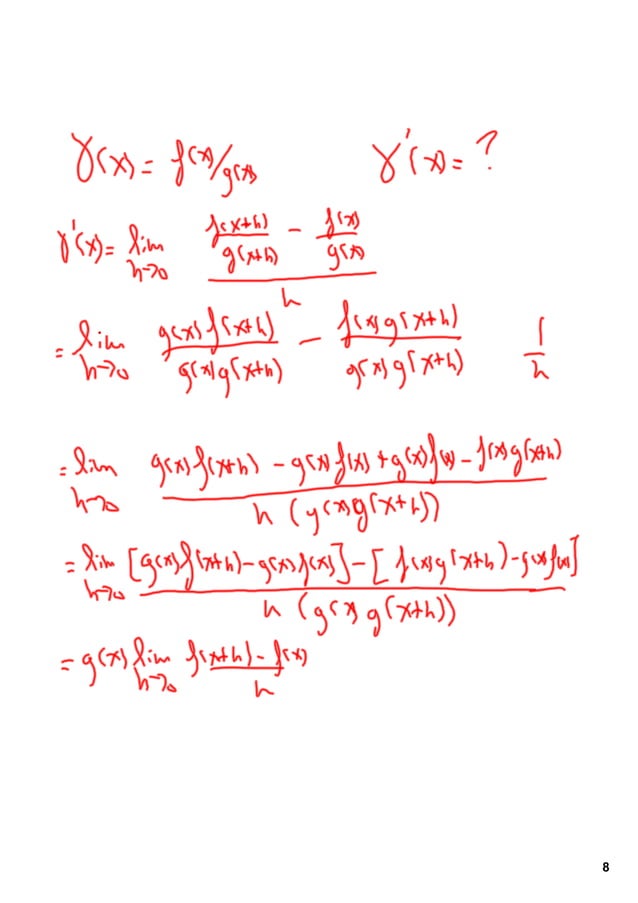 γ(x) = f(x)/g(x)    γ'(x) = ?
γ'(x) = lim h→0 (f(x+h)/g(x+h) - f(x)/g(x)) / h
= lim h→0 g(x)f(x+h)/g(x)g(x+h) - f(x)g(x+h)/g(x)g(x+h)    1/h
= lim h→0 (g(x)f(x+h) - g(x)f(x) + g(x)f(x) - f(x)g(x+h)) / h(g(x)g(x+h))
= lim h→0 ([g(x)f(x+h) - g(x)f(x)] - [f(x)g(x+h) - g(x)f(x)]) / h(g(x)g(x+h))
= g(x) lim h→0 (f(x+h) - f(x)) / h
8